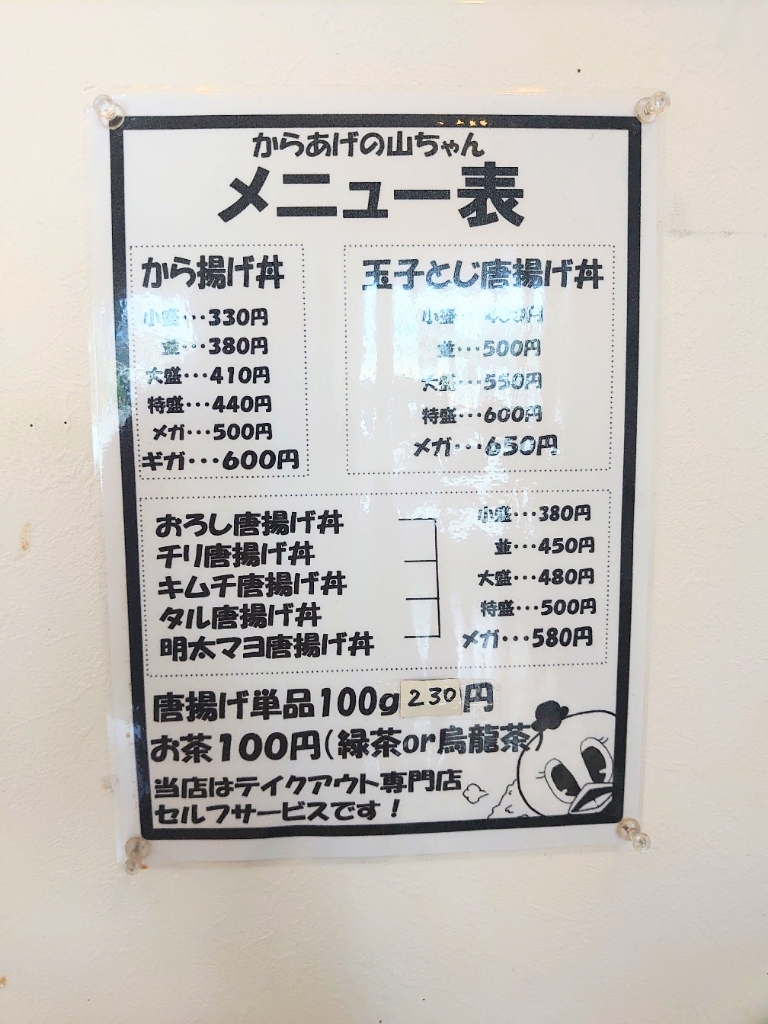 からあげの山ちゃん
メニュー表
から揚げ丼
小盛･･･330円
並･･･380円
大盛･･･410円
特盛･･･440円
メガ･･･500円
ギガ･･･600円
玉子とじ唐揚げ丼
小盛
並･･･500円
大盛･･･550円
特盛･･･600円
メガ･･･650円
おろし唐揚げ丼
チリ唐揚げ丼
キムチ唐揚げ丼
タル唐揚げ丼
明太マヨ唐揚げ丼
小盛･･･380円
並･･･450円
大盛･･･480円
特盛･･･500円
メガ･･･580円
唐揚げ単品100g 230円
お茶100円(緑茶or烏龍茶)
当店はテイクアウト専門店
セルフサービスです！